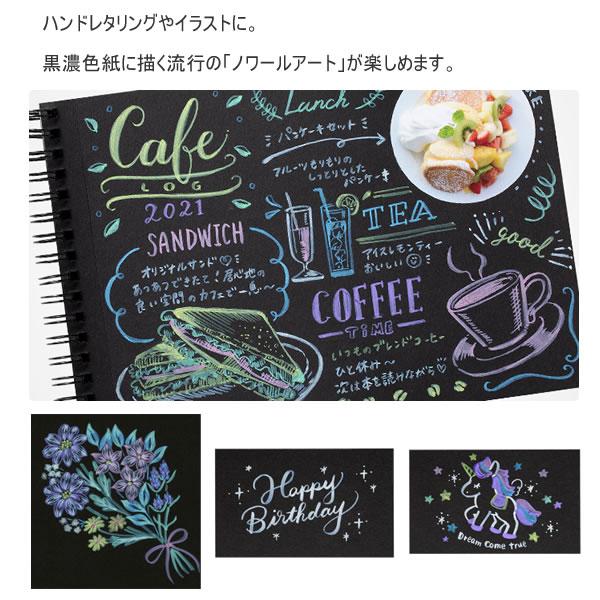 ハンドレタリングやイラストに。
黒濃色紙に描く流行の「ノワールアート」が楽しめます。
Cafe
LOG
2021
Lunch
パンケーキセット
フルーツもりもりの
しっとりとした
パンケーキ
SANDWICH
オリジナルサンド♡
あつあつできたて!居心地の
良い空間のカフェで一息〜
TEA
アイスレモンティー
おいしい
good
COFFEE
TiME
いつものブレンドコーヒー
ひと休み〜
次は本を読けながら♡
Happy
Birthday
Dream come true